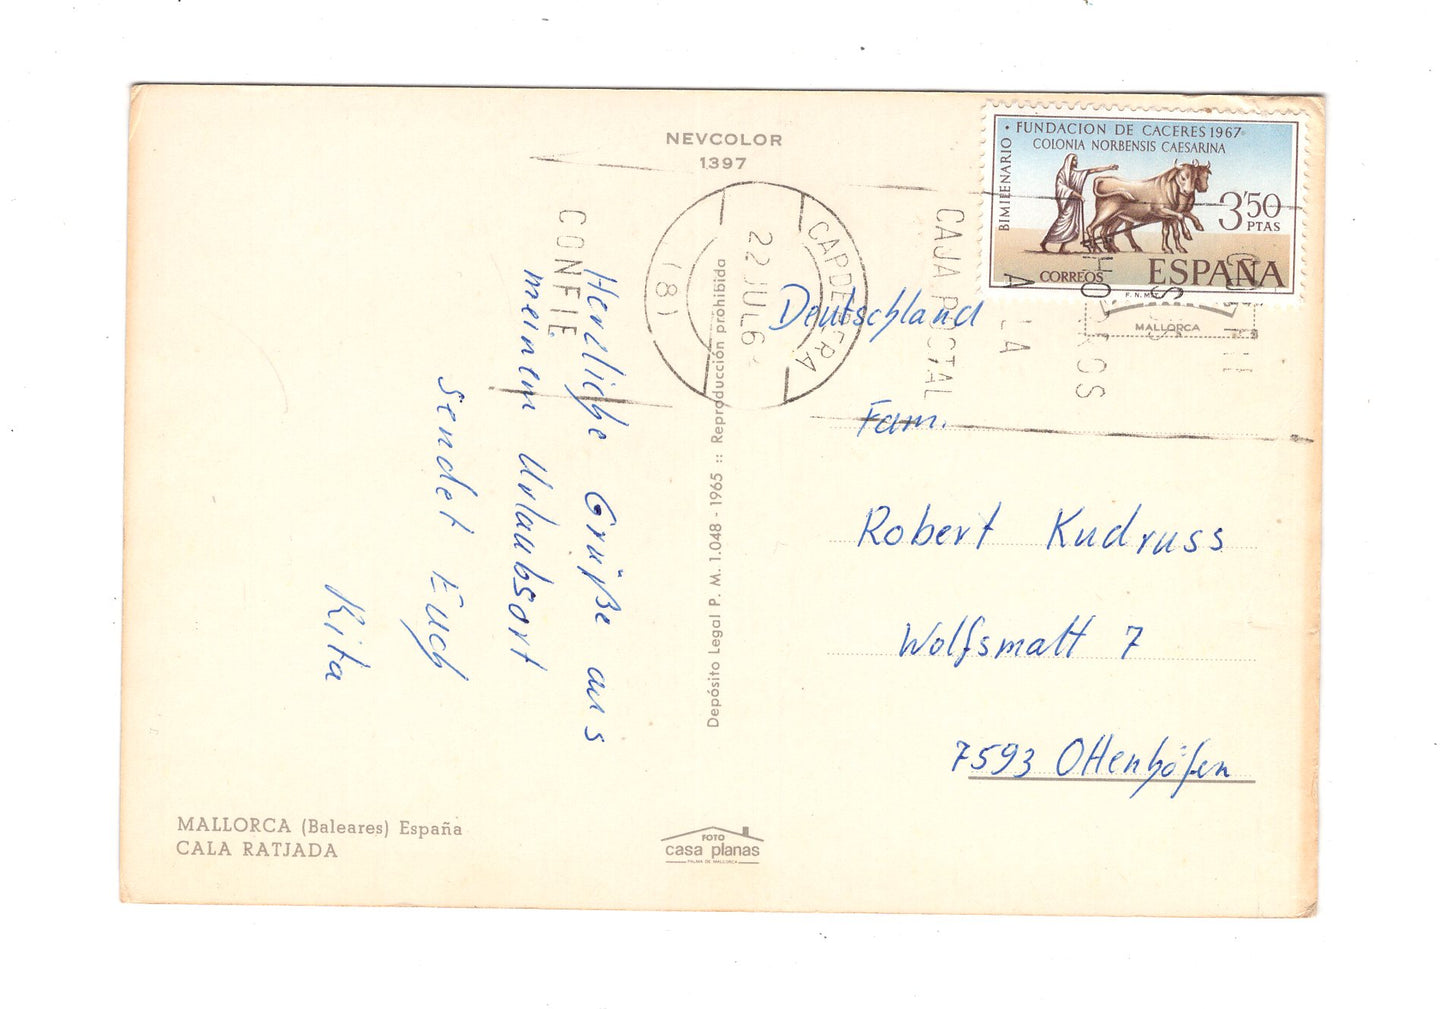 NEVCOLOR
1397
BIMILENARIO • FUNDACION DE CACERES 1967
COLONIA NORBENSIS CAESARINA
3'50
PTAS
CORREOS ESPAÑA
F.N.M.T.
MALLORCA
CAPDEPERA
22 JUL 6
(8)
CONFIE
A LA
CAJA POSTAL
Herzliche Grüße aus
meinem Urlaubsort
sendet Euch
Kita
Depósito Legal P. M. 1.048 - 1965 :: Reproducción prohibida
Deutschland
Fam.
Robert Kudruss
Wolfsmatt 7
7593 Ottenhöfen
MALLORCA (Baleares) España
CALA RATJADA
FOTO
casa planas
PALMA DE MALLORCA